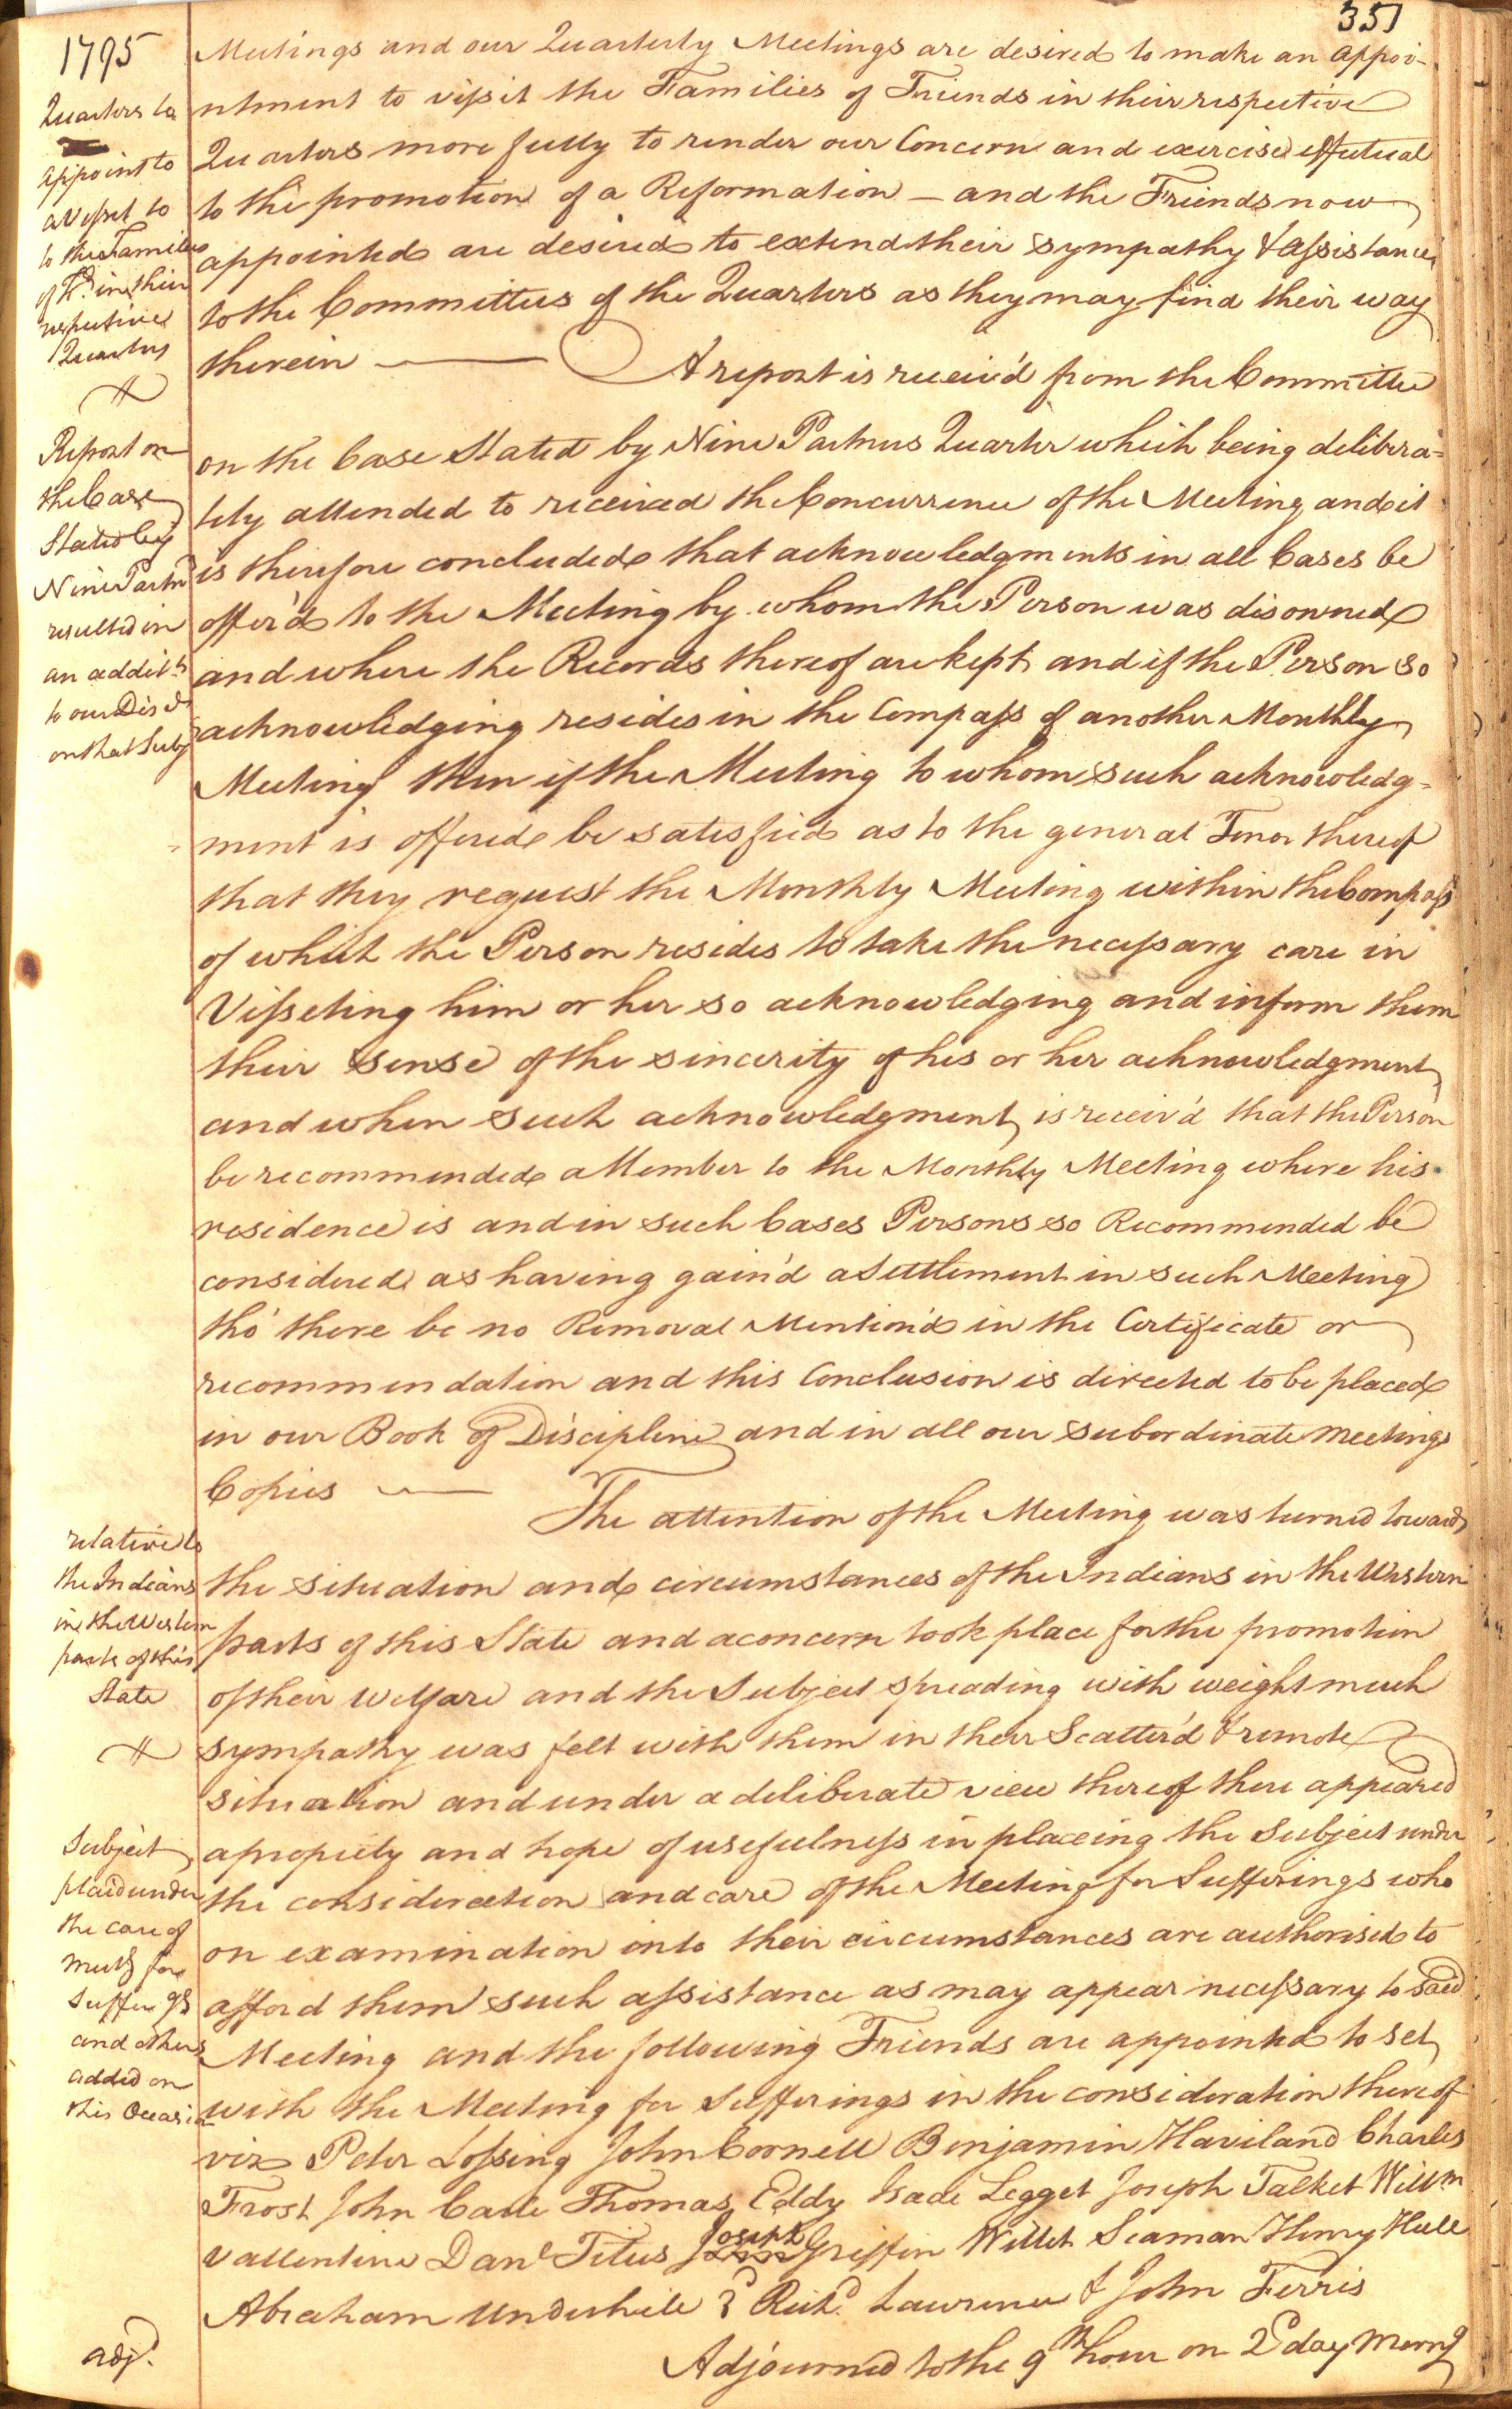 351
1795
Meetings and our Quarterly Meetings are desired to make an appoi-
ntment to vissit the Families of Friends in their respective
Quarters more fully to render our Concern and exercise effectual
to the promotion of a Reformation – and the Friends now
appointed are desired to extend their sympathy & assistance
to the Committees of the Quarters as they may find their way
therein —— A report is receiv'd from the Committee
on the Case Stated by Nine Partners Quarter which being delibera=
tely attended to received the Concurrence of the Meeting and it
is therefore concluded that acknowledgments in all Cases be
offer'd to the Meeting by whom the Person was disowned
and where the Records thereof are kept and if the Person so
acknowledging resides in the Compass of another Monthly
Meeting then if the Meeting to whom such acknowledg=
ment is offered be satisfied as to the general Tenor thereof
that they request the Monthly Meeting within the Compass
of which the Person resides to take the necessary care in
Visseting him or her so acknowledging and inform them
their sense of the sincerity of his or her acknowledgment
and when such acknowledgment is receiv'd that the Person
be recommended a Member to the Monthly Meeting where his
residence is and in such Cases Persons so Recommended be
considered as having gain'd a Settlement in such Meeting
tho' there be no Removal Mention'd in the Certificate or
recommendation and this Conclusion is directed to be placed
in our Book of Discipline and in all our subordinate meetings
Copies —— The attention of the Meeting was turned towards
the situation and circumstances of the Indians in the Western
parts of this State and a concern took place for the promotion
of their welfare and the Subject spreading with weight much
sympathy was felt with them in their Scatter'd & remote
situation and under a deliberate view thereof there appeared
a propriety and hope of usefulness in placeing the Subject under
the consideration and care of the Meeting for Sufferings who
on examination into their circumstances are authorised to
afford them such assistance as may appear necessary to said
Meeting and the following Friends are appointed to set
with the Meeting for Sufferings in the consideration thereof
viz Peter Lossing John Cornell Benjamin Haviland Charles
Frost John Carle Thomas Eddy Isaac Legget Joseph Talket Willm
Vallentine Danl Titus Joseph Griffin Willet Seaman Henry Hull
Abraham Underhile 3d Richd Lawrence & John Ferris
Adjourned to the 9th hour on 2d day Morng
Quarters to
appoint to
a Vissit to
to the Families
of Fds in their
respective
Quarters
Report on
the Case
Stated by
Nine Partnrs
resulted in
an addit.n
to our Disce
on that Subj
relative to
the Indians
in the Western
parts of this
State
Subject
plac'd under
the care of
meetg for
Sufferngs
and others
added on
this Occasion
adjd.